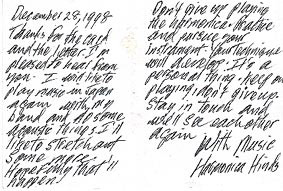 December 28, 1998
Thanks for the card
and the letter. I'm
pleased to hear from
you. I would like to
play music in Japan
again with my
band and do some
acoustic things I'd
like to stretch out
some more.
Hopefully that'll
happen.
Don't give up playing
the harmonica. Practice
and pursue your
instrument. Your technique
will develop. It's a
personal thing. Keep on
playing, don't give up.
Stay in touch and
we'll see each other
again
with Music
Harmonica Hinds